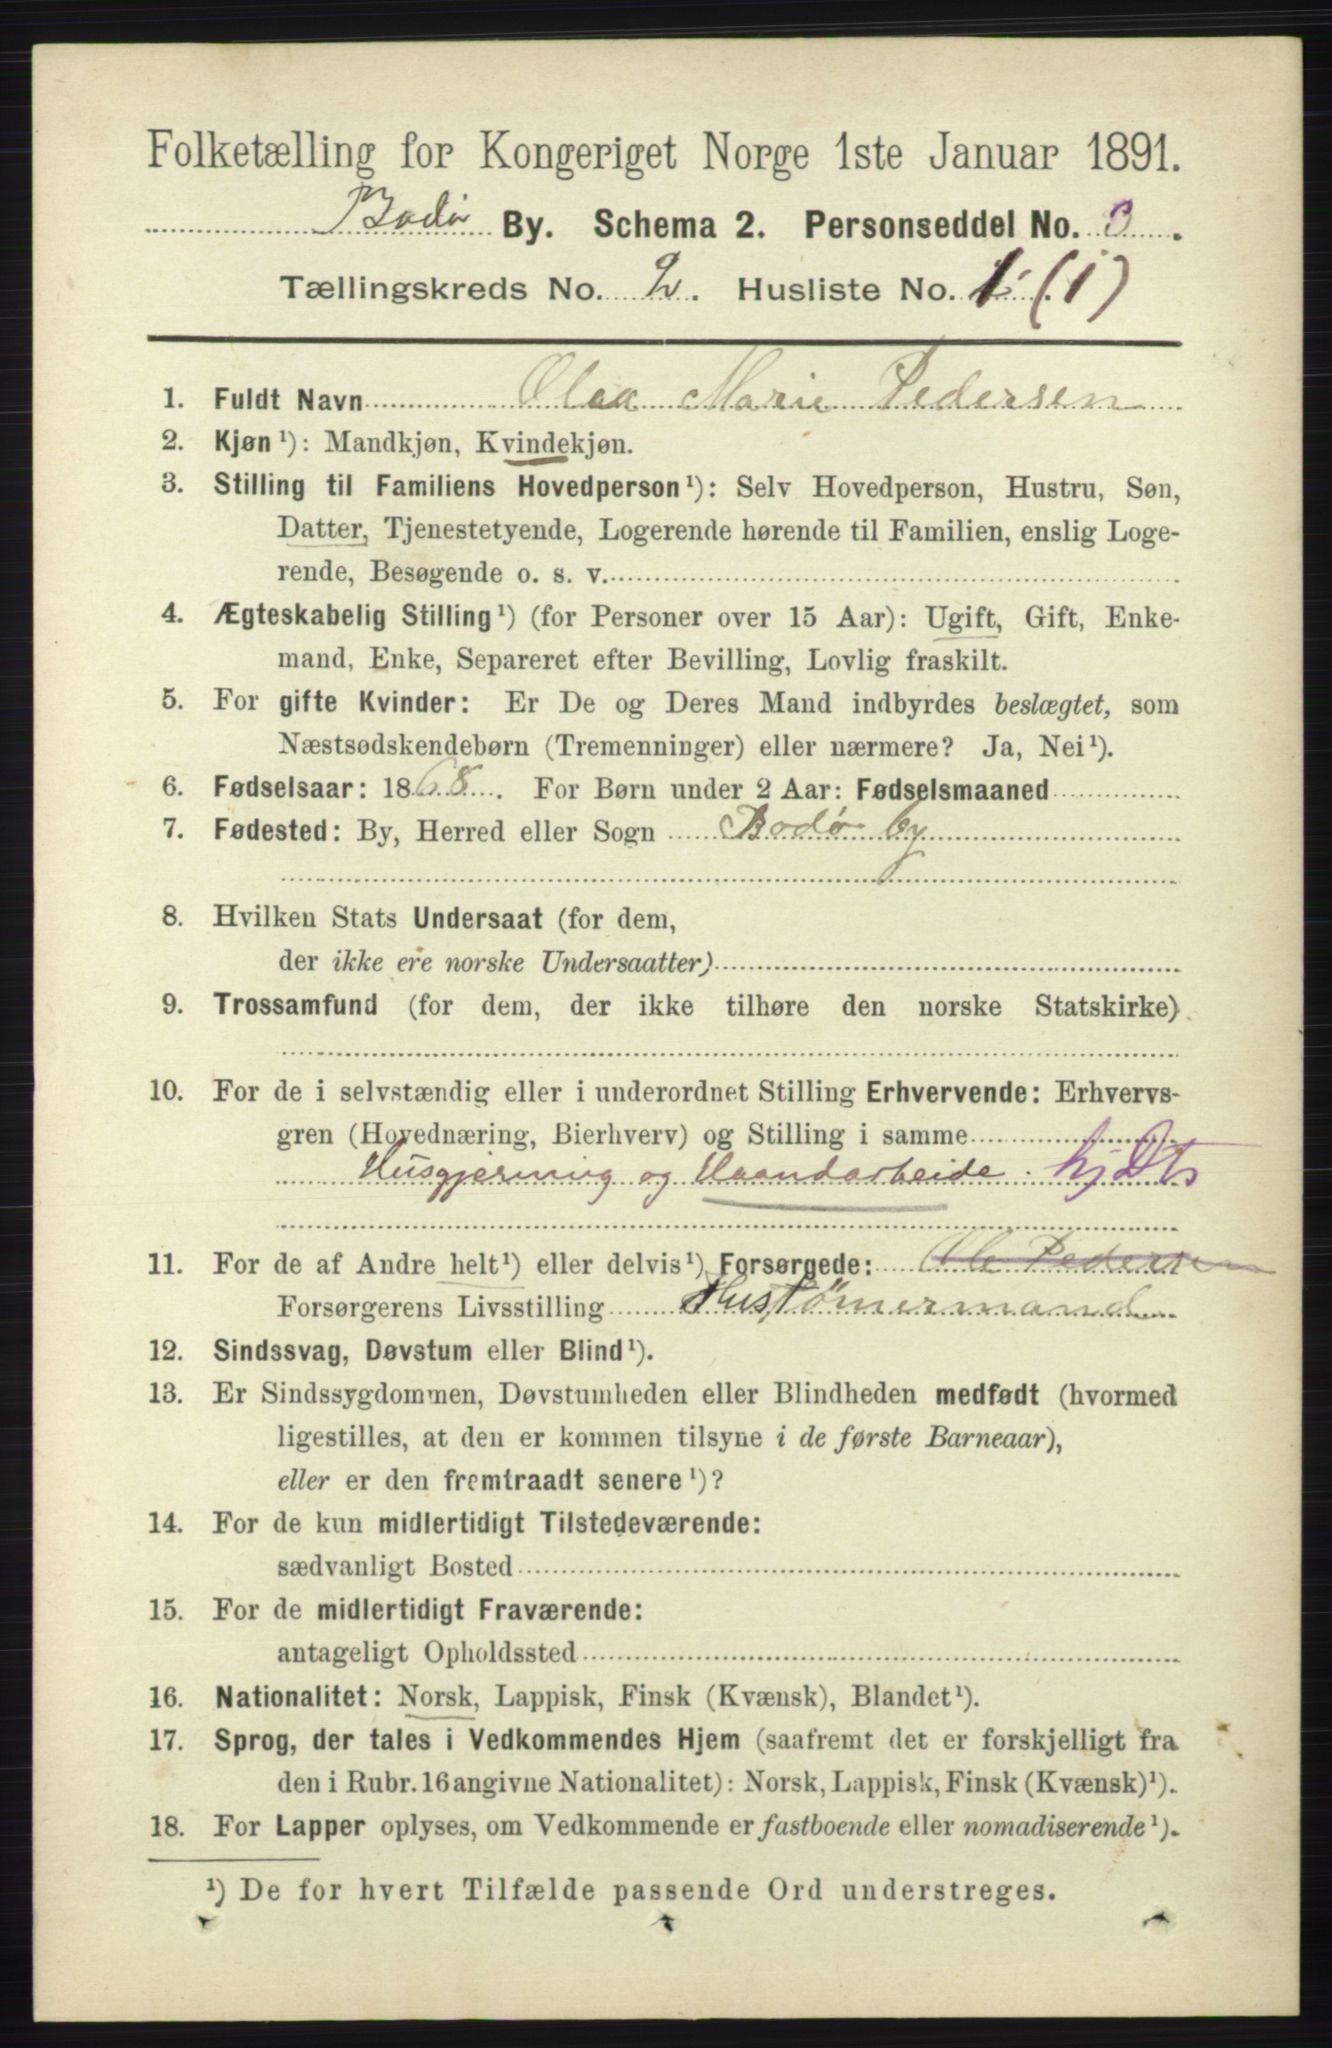 Folketælling for Kongeriget Norge 1ste Januar 1891.
Bodø By. Schema 2. Personseddel No. 3.
Tællingskreds No. 2. Husliste No. 1 (1)
1. Fuldt Navn Olea Marie Pedersen
2. Kjøn¹): Mandkjøn, Kvindekjøn.
3. Stilling til Familiens Hovedperson¹): Selv Hovedperson, Hustru, Søn,
Datter, Tjenestetyende, Logerende hørende til Familien, enslig Loge-
rende, Besøgende o. s. v.
4. Ægteskabelig Stilling¹) (for Personer over 15 Aar): Ugift, Gift, Enke-
mand, Enke, Separeret efter Bevilling, Lovlig fraskilt.
5. For gifte Kvinder: Er De og Deres Mand indbyrdes beslægtet, som
Næstsødskendebørn (Tremenninger) eller nærmere? Ja, Nei¹).
6. Fødselsaar: 1868. For Børn under 2 Aar: Fødselsmaaned
7. Fødested: By, Herred eller Sogn Bodø by
8. Hvilken Stats Undersaat (for dem,
der ikke ere norske Undersaatter)
9. Trossamfund (for dem, der ikke tilhøre den norske Statskirke)
10. For de i selvstændig eller i underordnet Stilling Erhvervende: Erhvervs-
gren (Hovednæring, Bierhverv) og Stilling i samme
Husgjerning og Haandarbeide. hj Dts
11. For de af Andre helt¹) eller delvis¹) Forsørgede: Ole Pedersen
Forsørgerens Livsstilling Hustømermand
12. Sindssvag, Døvstum eller Blind¹).
13. Er Sindssygdommen, Døvstumheden eller Blindheden medfødt (hvormed
ligestilles, at den er kommen tilsyne i de første Barneaar),
eller er den fremtraadt senere¹)?
14. For de kun midlertidigt Tilstedeværende:
sædvanligt Bosted
15. For de midlertidigt Fraværende:
antageligt Opholdssted
16. Nationalitet: Norsk, Lappisk, Finsk (Kvænsk), Blandet¹).
17. Sprog, der tales i Vedkommendes Hjem (saafremt det er forskjelligt fra
den i Rubr. 16 angivne Nationalitet): Norsk, Lappisk, Finsk (Kvænsk)¹).
18. For Lapper oplyses, om Vedkommende er fastboende eller nomadiserende¹).
¹) De for hvert Tilfælde passende Ord understreges.